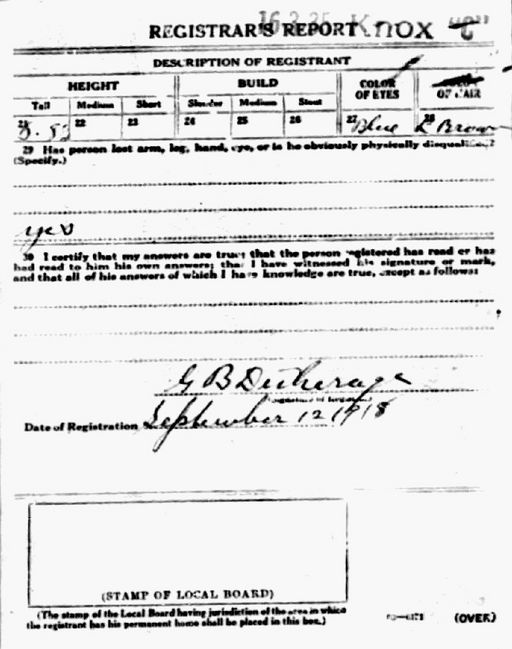 16-3-35 Knox "C"
REGISTRAR'S REPORT
DESCRIPTION OF REGISTRANT
HEIGHT BUILD COLOR OF EYES OF HAIR
Tall Medium Short Slender Medium Stout
21 22 23 24 25 26 27 Blue 28 L Brown
29 Has person lost arm, leg, hand, eye, or is he obviously physically disqualified?
(Specify.)
yes
30 I certify that my answers are true; that the person registered has read or has
had read to him his own answers; that I have witnessed his signature or mark,
and that all of his answers of which I have knowledge are true, except as follows:
G B Detherage
(Signature of Registrar)
Date of Registration September 12 1918
(STAMP OF LOCAL BOARD)
(The stamp of the Local Board having jurisdiction of the area in which
the registrant has his permanent home shall be placed in this box.)
(OVER)